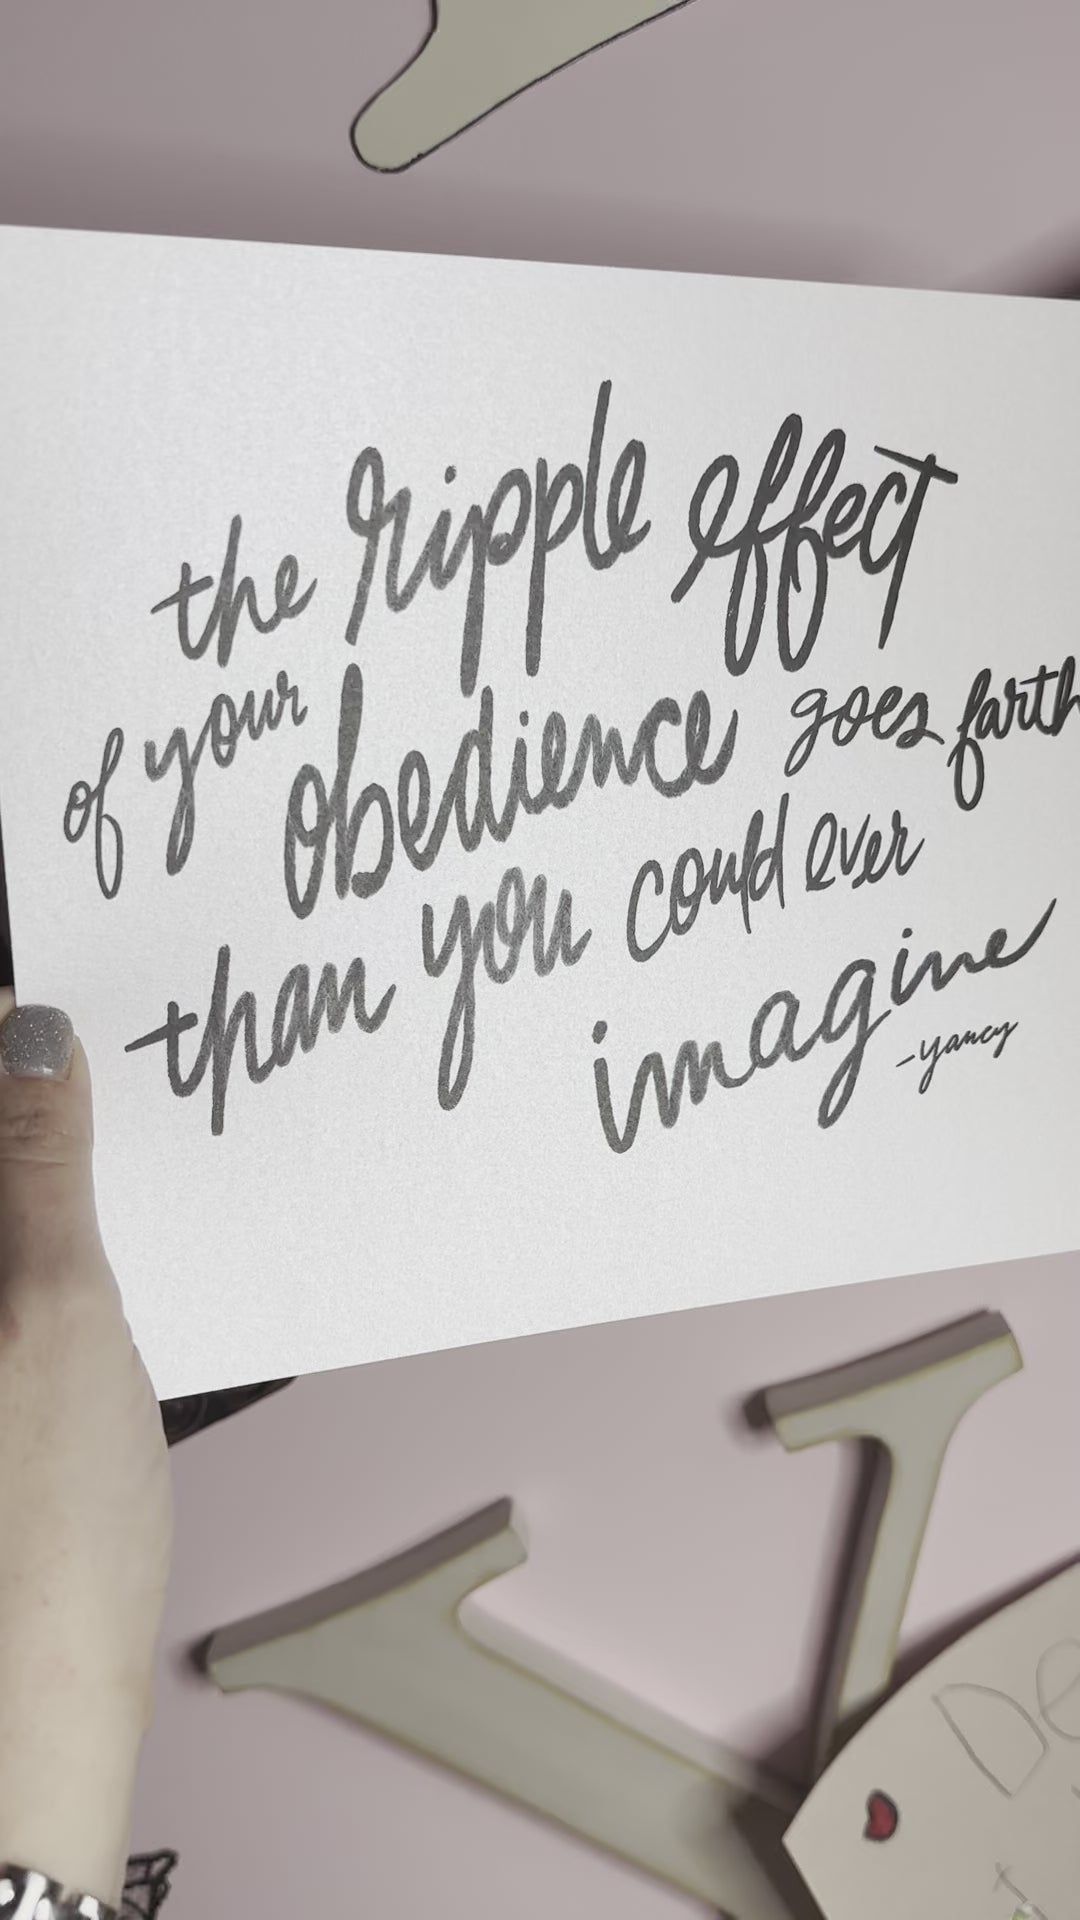 the ripple effect
of your obedience goes farth
than you could ever
imagine
-yancy
Y
De